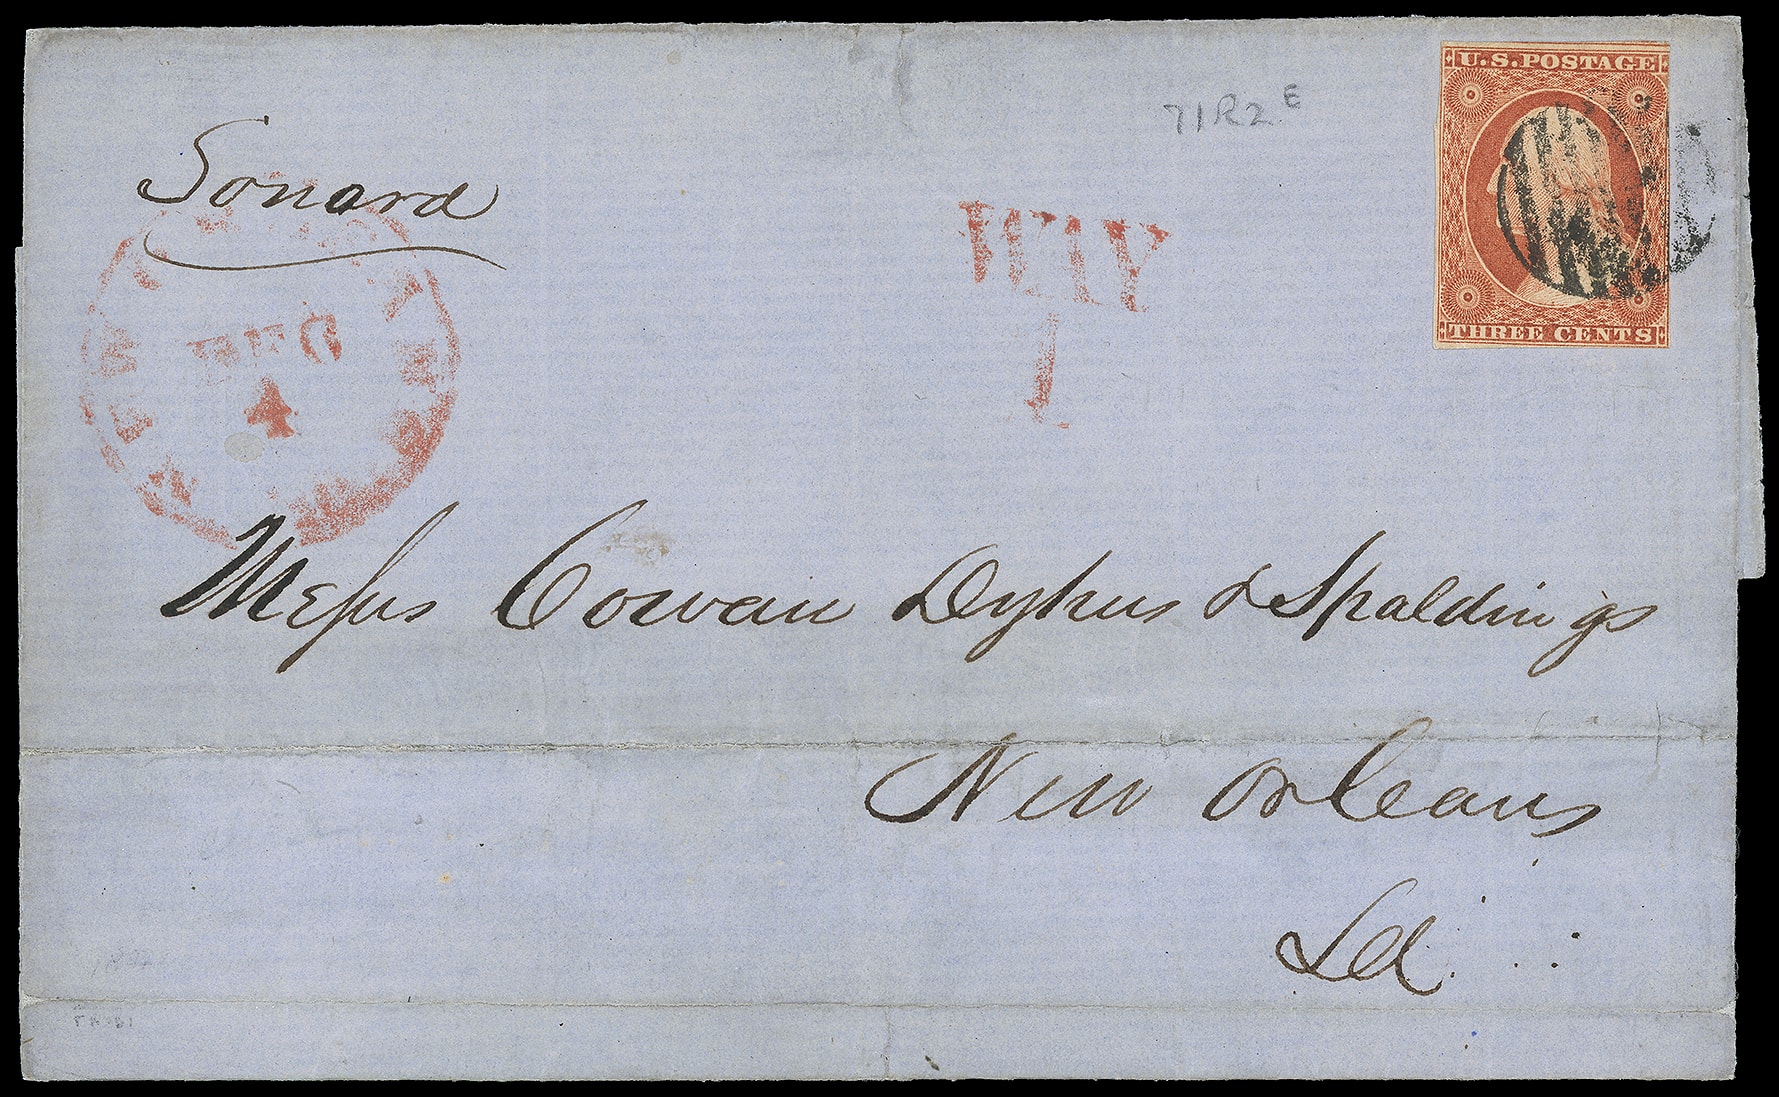 U.S. POSTAGE
71R2 E
Sonora
WAY
1
4
THREE CENTS
Messrs Cowan Dykus & Spaldings
New Orleans
La